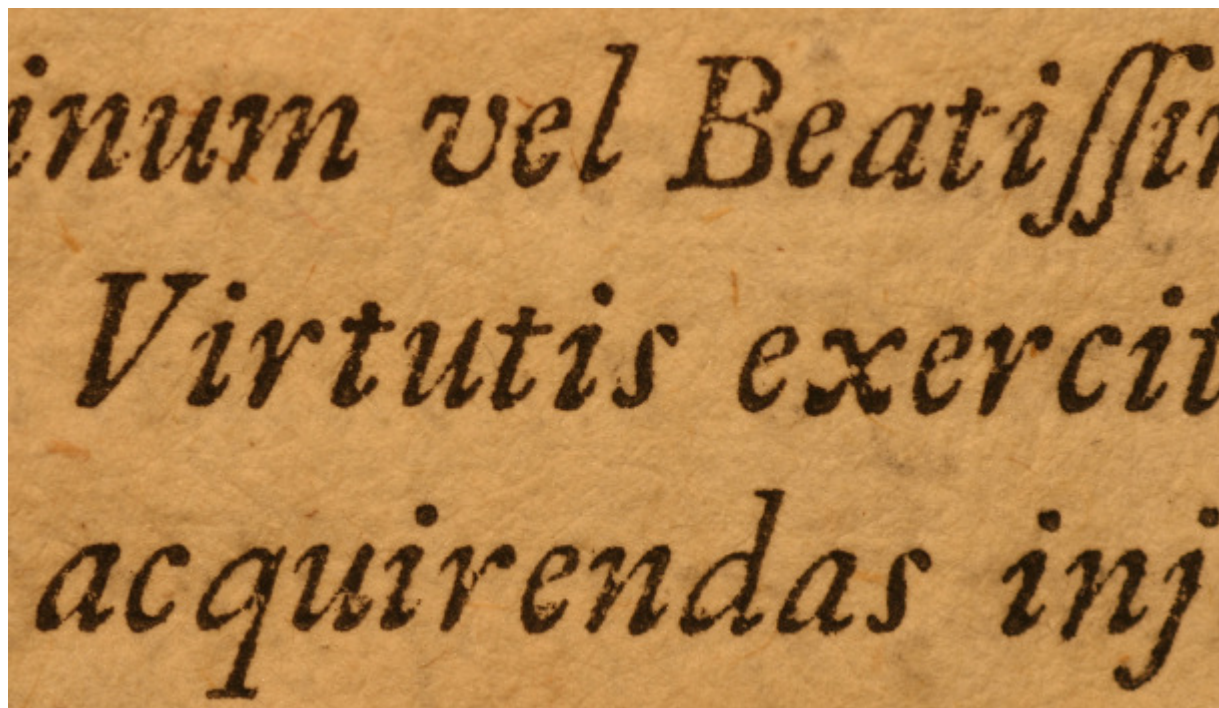 inum vel Beatiſſin
Virtutis exercit
acquirendas inj